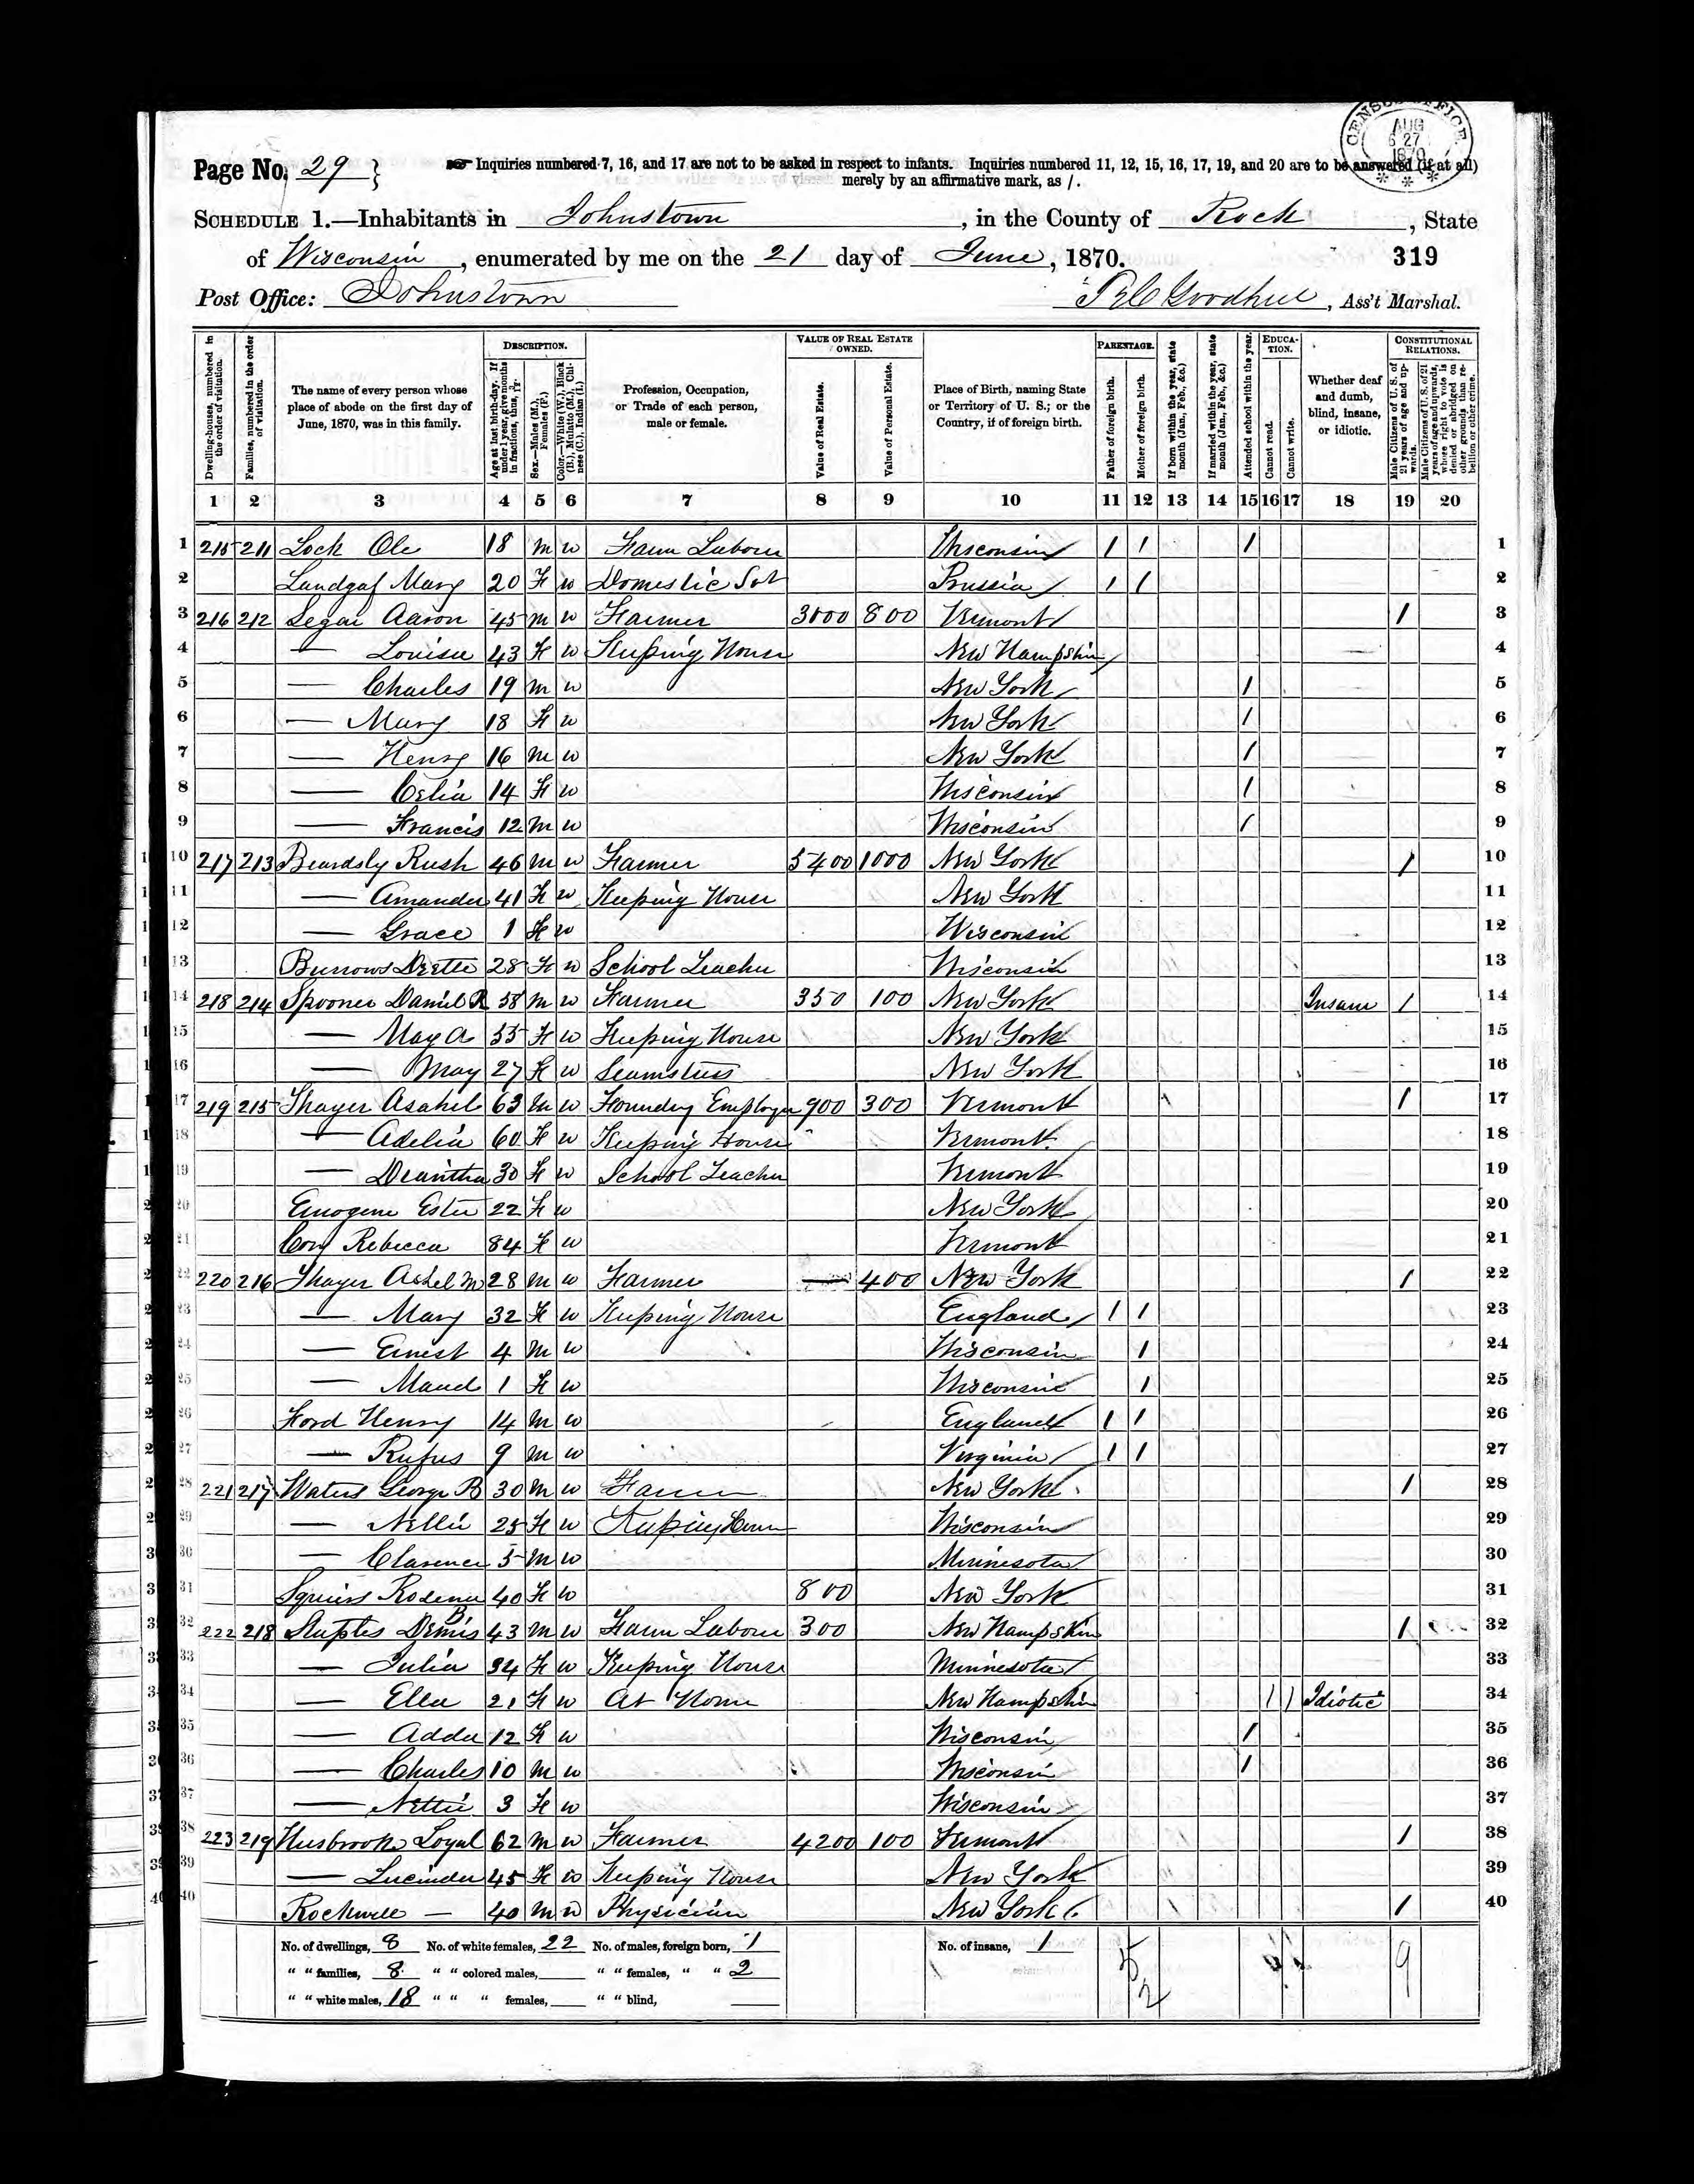 CENSUS OFFICE
AUG
27
1870
Page No. 29 } Inquiries numbered 7, 16, and 17 are not to be asked in respect to infants. Inquiries numbered 11, 12, 15, 16, 17, 19, and 20 are to be answered (if at all)
merely by an affirmative mark, as /.
SCHEDULE 1.—Inhabitants in Johnstown, in the County of Rock, State
of Wisconsin, enumerated by me on the 21 day of June, 1870. 319
Post Office: Johnstown Goodhue, Ass't Marshal.
Dwelling-houses, numbered in the order of visitation.
Families, numbered in the order of visitation.
The name of every person whose place of abode on the first day of June, 1870, was in this family.
DESCRIPTION.
Age at last birth-day. If under 1 year, give months in fractions, thus,
Sex.—Males (M.), Females (F.)
Color.—White (W.), Black (B.), Mulatto (M.), Chinese (C.), Indian (I.)
Profession, Occupation, or Trade of each person, male or female.
VALUE OF REAL ESTATE OWNED.
Value of Real Estate.
Value of Personal Estate.
Place of Birth, naming State or Territory of U. S.; or the Country, if of foreign birth.
PARENTAGE.
Father of foreign birth.
Mother of foreign birth.
If born within the year, state month (Jan., Feb., &c.)
If married within the year, state month (Jan., Feb., &c.)
Attended school within the year.
EDUCATION.
Cannot read.
Cannot write.
Whether deaf and dumb, blind, insane, or idiotic.
CONSTITUTIONAL RELATIONS.
Male Citizens of U. S. of 21 years of age and upwards.
Male Citizens of U. S. of 21 years of age and upwards, whose right to vote is denied or abridged on other grounds than rebellion or other crime.
1 2 3 4 5 6 7 8 9 10 11 12 13 14 15 16 17 18 19 20
1 215 211 Lock Ole 18 m w Farm Laborer Wisconsin 1 1 1 1
2 Landgaf Mary 20 F w Domestic Prussia 1 1 2
3 216 212 Segar Aaron 45 m w Farmer 3000 800 Vermont 1 3
4 — Louisa 43 F w Keeping House New Hampshire 4
5 — Charles 19 m w New York 1 5
6 — Mary 18 F w New York 1 6
7 — Henry 16 m w New York 1 7
8 — Celia 14 F w Wisconsin 1 8
9 — Francis 12 m w Wisconsin 1 9
10 217 213 Beardsly Rush 46 m w Farmer 5400 1000 New York 1 10
11 — Amanda 41 F w Keeping House New York 11
12 — Grace 1 F w Wisconsin 12
13 Burrows 28 F w School Teacher Wisconsin 13
14 218 214 Spooner Daniel R 58 m w Farmer 350 100 New York Insane 1 14
15 — May A 55 F w Keeping House New York 15
16 — May 27 F w Seamstress New York 16
17 219 215 Thayer Asahel 63 m w Foundry Employee 900 300 Vermont 1 17
18 — Adelia 60 F w Keeping House Vermont 18
19 — Deantha 30 F w School Teacher Vermont 19
20 Emogene Ester 22 F w New York 20
21 Cory Rebecca 84 F w Vermont 21
22 220 216 Thayer Ashel M 28 m w Farmer 400 New York 1 22
23 — Mary 32 F w Keeping House England 1 1 23
24 — Ernest 4 m w Wisconsin 1 24
25 — Maud 1 F w Wisconsin 1 25
26 Ford Henry 14 m w England 1 1 26
27 — Rufus 9 m w Virginia 1 1 27
28 221 217 Waters George B 30 m w Farmer New York 1 28
29 — Nellie 25 F w Keeping House Wisconsin 29
30 — Clarence 5 m w Minnesota 30
31 Squires Rosena 40 F w 800 New York 31
32 222 218 Staples Dennis B. 43 m w Farm Laborer 300 New Hampshire 1 32
33 — Julia 34 F w Keeping House Minnesota 33
34 — Ella 21 F w At Home New Hampshire 1 1 Idiotic 34
35 — Adda 12 F w Wisconsin 1 35
36 — Charles 10 m w Wisconsin 1 36
37 — Nettie 3 F w Wisconsin 37
38 223 219 Husbrook Loyal 62 m w Farmer 4200 100 Vermont 1 38
39 — Lucinda 45 F w Keeping House New York 39
40 Rockwell — 40 m w Physician New York 1 40
No. of dwellings, 8 No. of white females, 22 No. of males, foreign born, 1 No. of insane, 1
" " families, 8 " " colored males, " " females, " " 2
" " white males, 18 " " " females, " " blind,
5 2 9